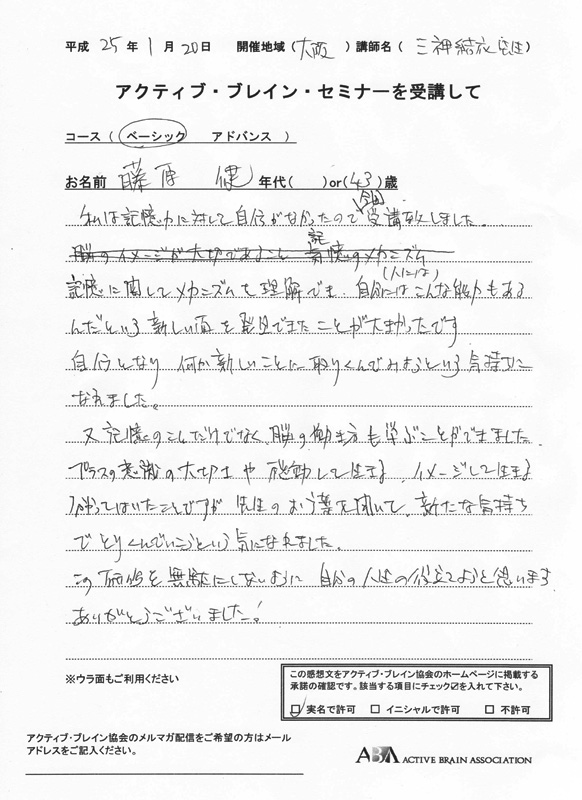 平成 25年 1月 20日 開催地域(大阪)講師名(三神結衣先生)
アクティブ・ブレイン・セミナーを受講して
コース( ベーシック アドバンス )
お名前 藤原 健 年代( )or(43)歳
私は記憶力に対して自信がなかったので今回受講致しました。
脳のイメージが大切であること 記憶のメカニズム
記憶に関してメカニズムを理解でき、自分には(人には)こんな能力もある
んだという新しい面を発見できたことが大きかったです
自信となり 何か新しいことに取りくんでみようという気持ちに
なれました。
又 記憶のことだけでなく、脳の働き方も学ぶことができました
プラスの意識の大切さや 感動して生きる、イメージして生きる
解ってはいたことですが 先生のお言葉を聞いて、新たな気持ち
で とりくんでいこうという気になれました。
この価値を無駄にしないように 自分の人生の役立てようと思います
ありがとうございました!
※ウラ面もご利用ください
この感想文をアクティブ・ブレイン協会のホームページに掲載する
承諾の確認です。該当する項目にチェック☑を入れて下さい。
☑ 実名で許可 □ イニシャルで許可 □ 不許可
アクティブ・ブレイン協会のメルマガ配信をご希望の方はメール
アドレスをご記入ください。
ABA ACTIVE BRAIN ASSOCIATION